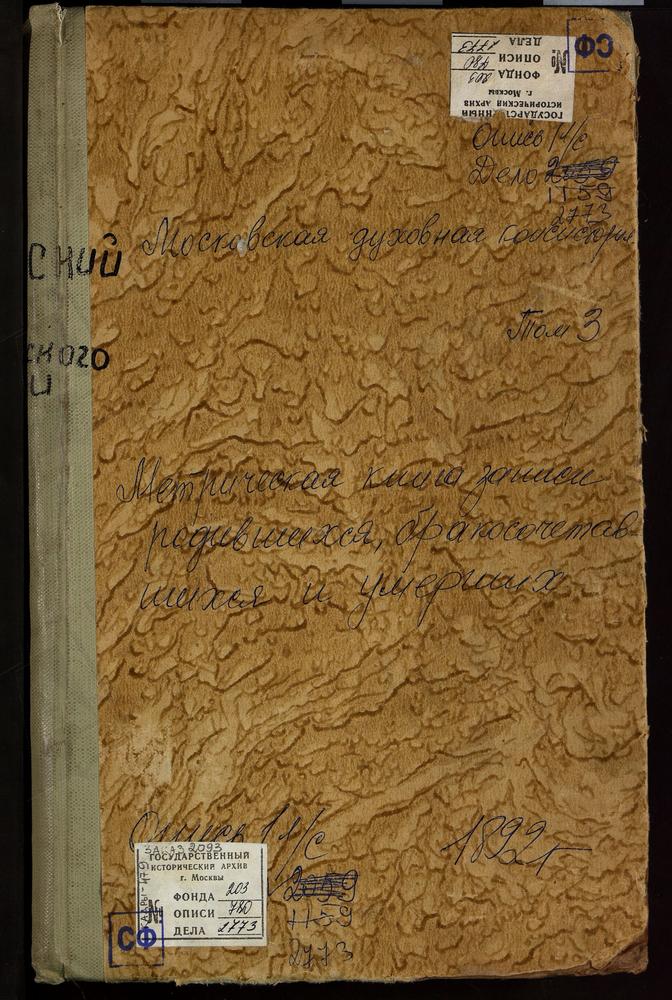 СФ
ГОСУДАРСТВЕННЫЙ
ИСТОРИЧЕСКИЙ АРХИВ
г. Москвы
№
ФОНДА 203
ОПИСИ 780
ДЕЛА 2773
Опись 1 л/с
Дело 2059
1159
2773
ский
Московская духовная консистория
Том 3
ского
и
Метрическая книга записи
родившихся, бракосочетав
шихся и умерших
Опись 1 л/с
1892 г
2059
1159
2773
ЗАКАЗ 2093
ГОСУДАРСТВЕННЫЙ
ИСТОРИЧЕСКИЙ АРХИВ
г. Москвы
№
ФОНДА 203
ОПИСИ 780
ДЕЛА 2773
СФ